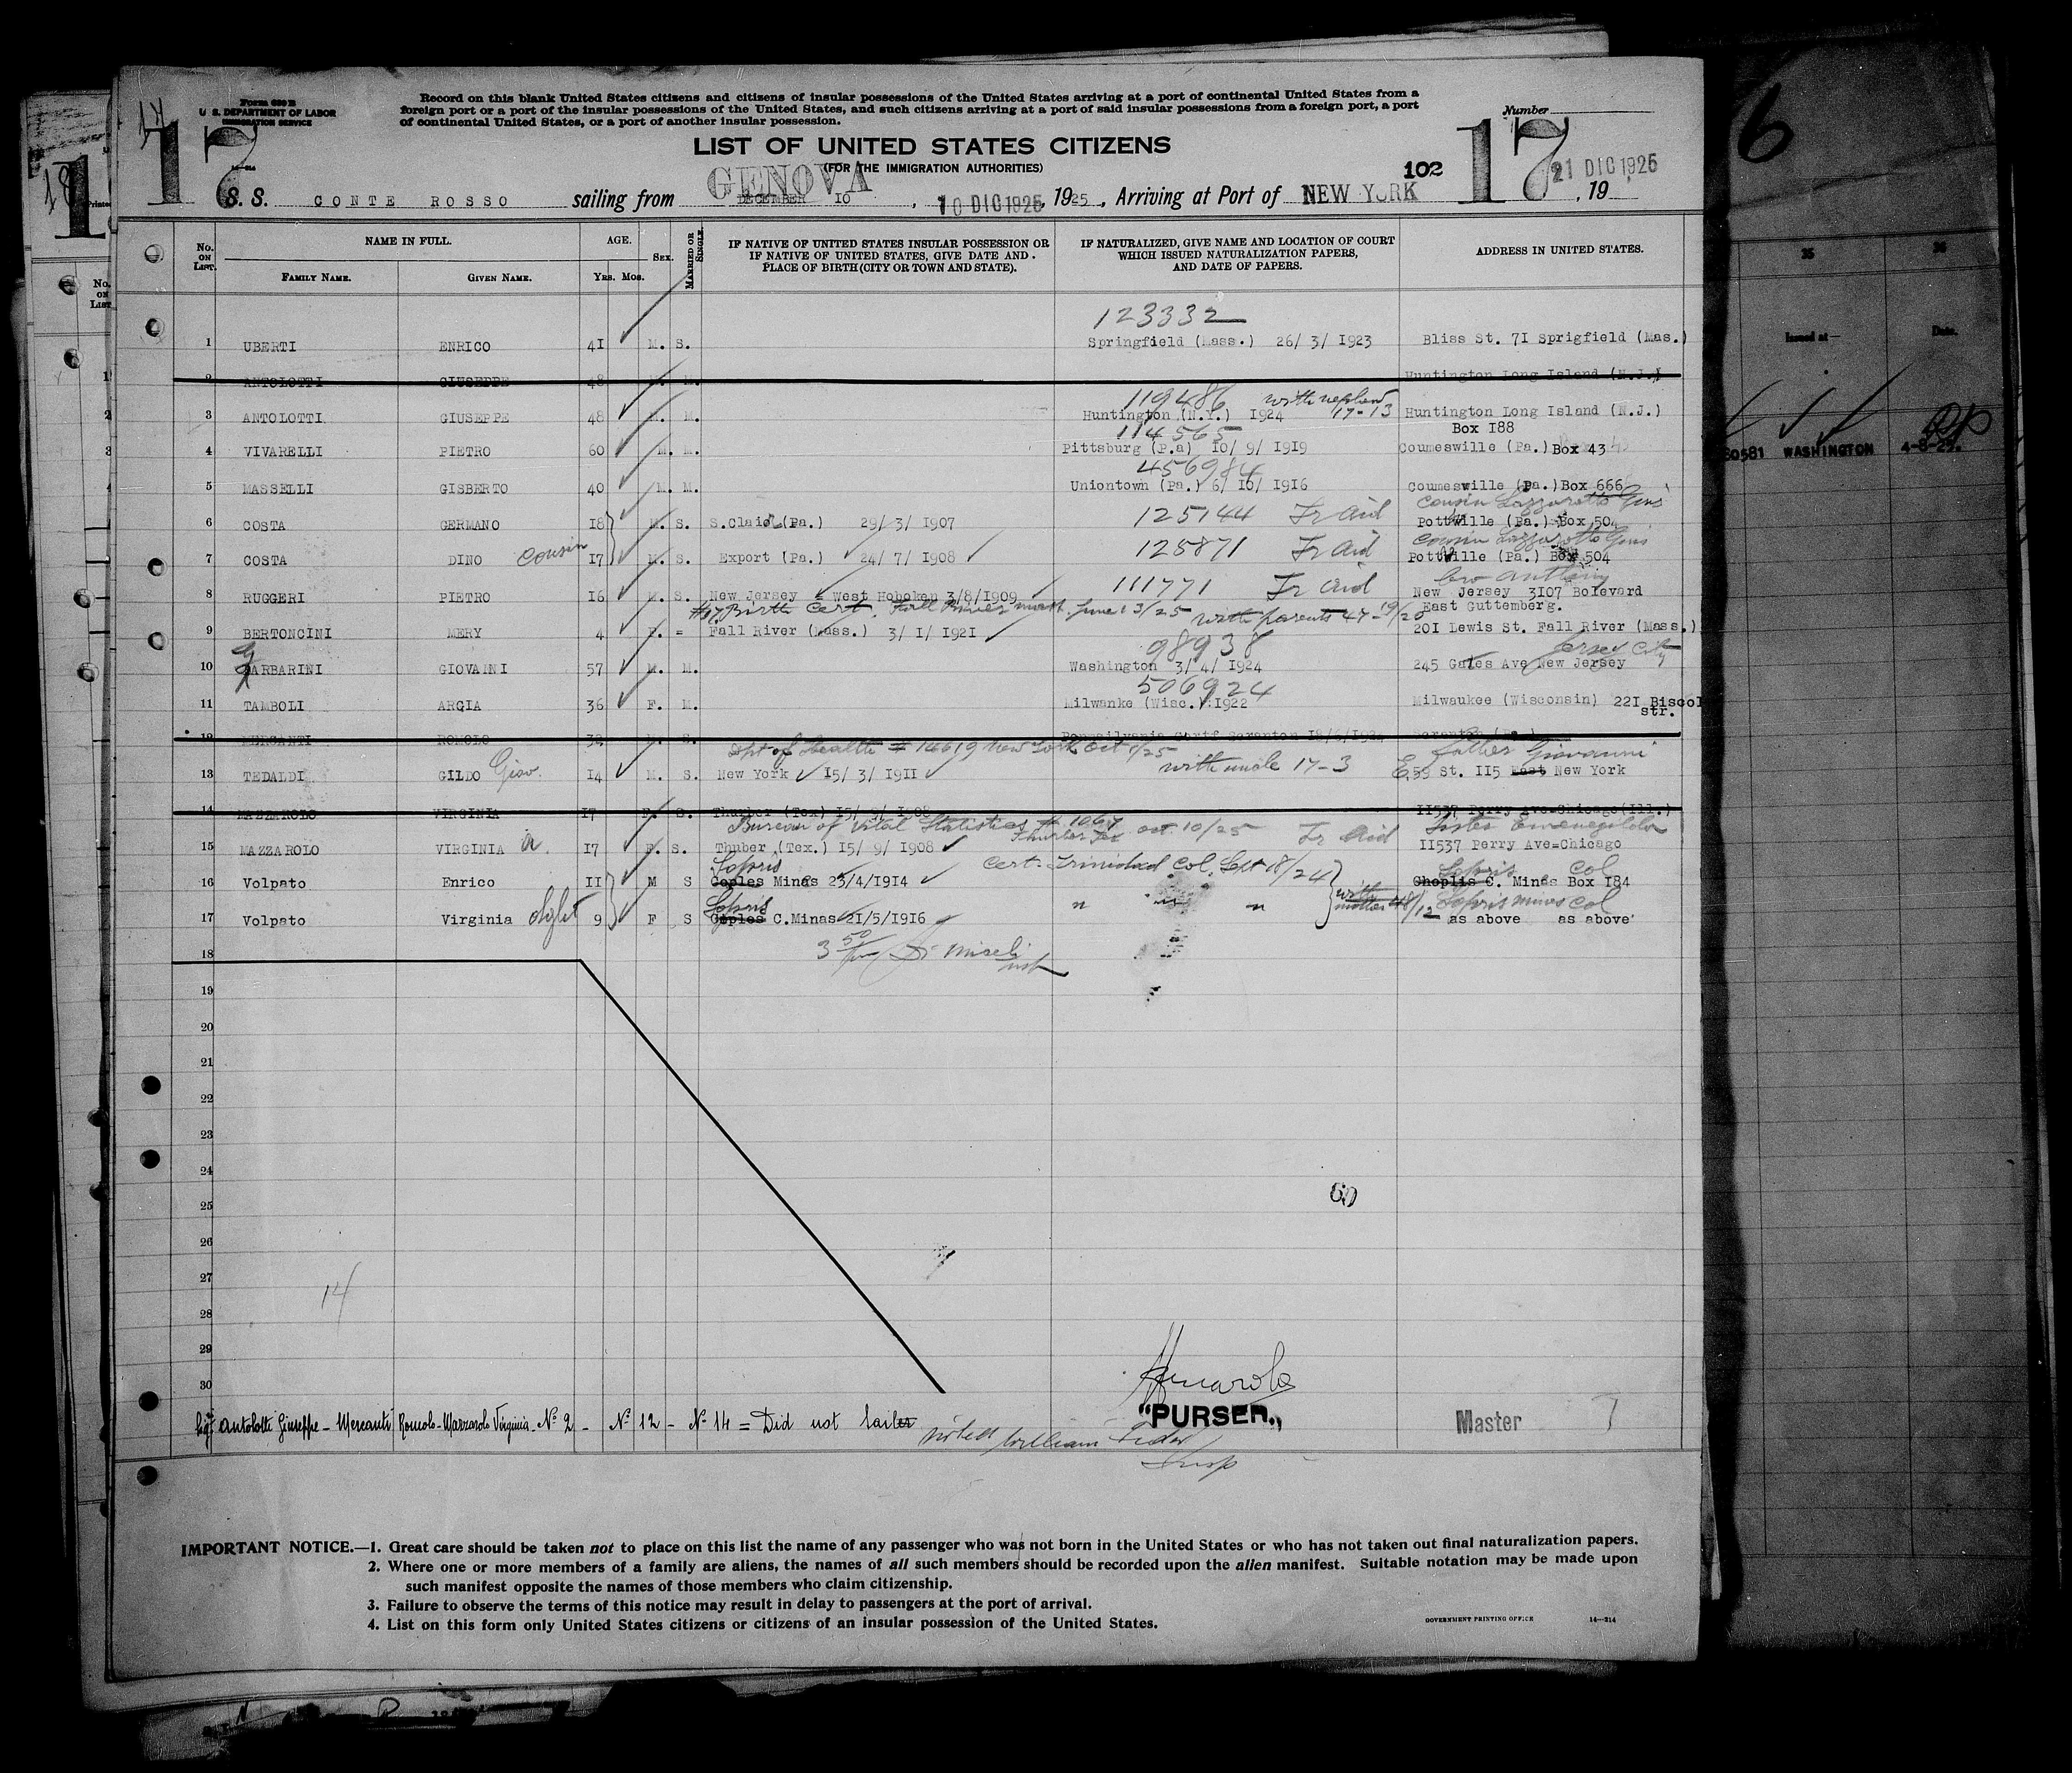 Form 630 B
U. S. DEPARTMENT OF LABOR
IMMIGRATION SERVICE
Record on this blank United States citizens and citizens of insular possessions of the United States arriving at a port of continental United States from a
foreign port or a port of the insular possessions of the United States, and such citizens arriving at a port of said insular possessions from a foreign port, a port
of continental United States, or a port of another insular possession.
Number
17
17
LIST OF UNITED STATES CITIZENS
(FOR THE IMMIGRATION AUTHORITIES)
102
S. S. CONTE ROSSO sailing from GENOVA DECEMBER 10, 10 DIC 1925 1925, Arriving at Port of NEW YORK 21 DIC 1925, 19
No. ON LIST. NAME IN FULL. AGE. SEX. MARRIED OR SINGLE. IF NATIVE OF UNITED STATES INSULAR POSSESSION OR IF NATIVE OF UNITED STATES, GIVE DATE AND PLACE OF BIRTH (CITY OR TOWN AND STATE). IF NATURALIZED, GIVE NAME AND LOCATION OF COURT WHICH ISSUED NATURALIZATION PAPERS, AND DATE OF PAPERS. ADDRESS IN UNITED STATES.
FAMILY NAME. GIVEN NAME. YRS. MOS.
123332
1 UBERTI ENRICO 41 M. S. Springfield (Mass.) 26/ 3/ 1923 Bliss St. 71 Sprigfield (Mas.)
2 ANTOLOTTI GIUSEPPE 48 M. M. Huntington Long Island (N.J.)
119486 with nephew 17-13
3 ANTOLOTTI GIUSEPPE 48 M. M. Huntington (N.Y.) 1924 Huntington Long Island (N.J.)
Box 188
114565
4 VIVARELLI PIETRO 60 M. M. Pittsburg (P.a) 10/ 9/ 1919 Coumeswille (Pa.) Box 43
456984
5 MASSELLI GISBERTO 40 M. M. Uniontown (Pa.) 6/ 10/ 1916 Coumeswille (Pa.) Box 666
cousin Lazzarotto
6 COSTA GERMANO 18 M. S. S.Clair (Pa.) 29/ 3/ 1907 125144 Tr Aid Pottville (Pa.) Box 504
cousin Lazzarotto
7 COSTA DINO cousin 17 M. S. Export (Pa.) 24/ 7/ 1908 125871 Tr Aid Pottville (Pa.) Box 504
bro Anthony
8 RUGGERI PIETRO 16 M. S. New Jersey = West Hoboken 3/8/1909 111771 Tr Aid New Jersey 3107 Bolevard
East Guttemberg.
Birth Cert. Fall River mass. June 13/25 with parents 47-19/20
9 BERTONCINI MERY 4 F. = Fall River (Mass.) 3/ 1/ 1921 201 Lewis St. Fall River (Mass.)
98938 Jersey City
10 GARBARINI GIOVANNI 57 M. M. Washington 3/4/ 1924 245 Gates Ave New Jersey
506924
11 TAMBOLI ARGIA 36 F. M. Milwanke (Wisc.) 1922 Milwaukee (Wisconsin) 221 Biscol
str.
12 MERCANTI ROMOLO 32 M. S. Pennsilvania Certf Scranton Scranton (Pa.)
Dpt of Health # 14619 New York Oct 1/25 with uncle 17-3 father Giovanni
13 TEDALDI GILDO Giov. 14 M. S. New York 15/ 3/ 1911 E. 59 St. 115 East New York
14 MAZZAROLO VIRGINIA 17 F. S. Thuber (Tex) 15/ 9/ 1908 11537 Perry Ave=Chicago(Ill.)
Bureau of Vital Statistics # 1067 Thurber Tex oct. 10/25 Tr Aid
15 MAZZAROLO VIRGINIA 17 F. S. Thuber (Tex.) 15/ 9/ 1908 11537 Perry Ave=Chicago
Sopris Cert. Trinidad Col. Sept 18/24 Sopris Col
16 Volpato Enrico 11 M S Coples Minas 23/4/1914 Shoplis C. Minas Box 184
Sopris with mother 48/12 Sopris mines Col
17 Volpato Virginia 9 F S Coples C.Minas 21/5/1916 " " " as above as above
18
19
20
21
22
23
24
25
26
27
28
29
30
60
14
"PURSER"
Master
Antolotti Giuseppe - Mercanti Romolo - Mazzarolo Virginia - N° 2 - N° 12 - N° 14 = Did not sail
noted William
Insp
IMPORTANT NOTICE.—1. Great care should be taken not to place on this list the name of any passenger who was not born in the United States or who has not taken out final naturalization papers.
2. Where one or more members of a family are aliens, the names of all such members should be recorded upon the alien manifest. Suitable notation may be made upon
such manifest opposite the names of those members who claim citizenship.
3. Failure to observe the terms of this notice may result in delay to passengers at the port of arrival.
4. List on this form only United States citizens or citizens of an insular possession of the United States.
GOVERNMENT PRINTING OFFICE 14—214
6
35 36
Issued at— Date.
60581 WASHINGTON 4-8-25.